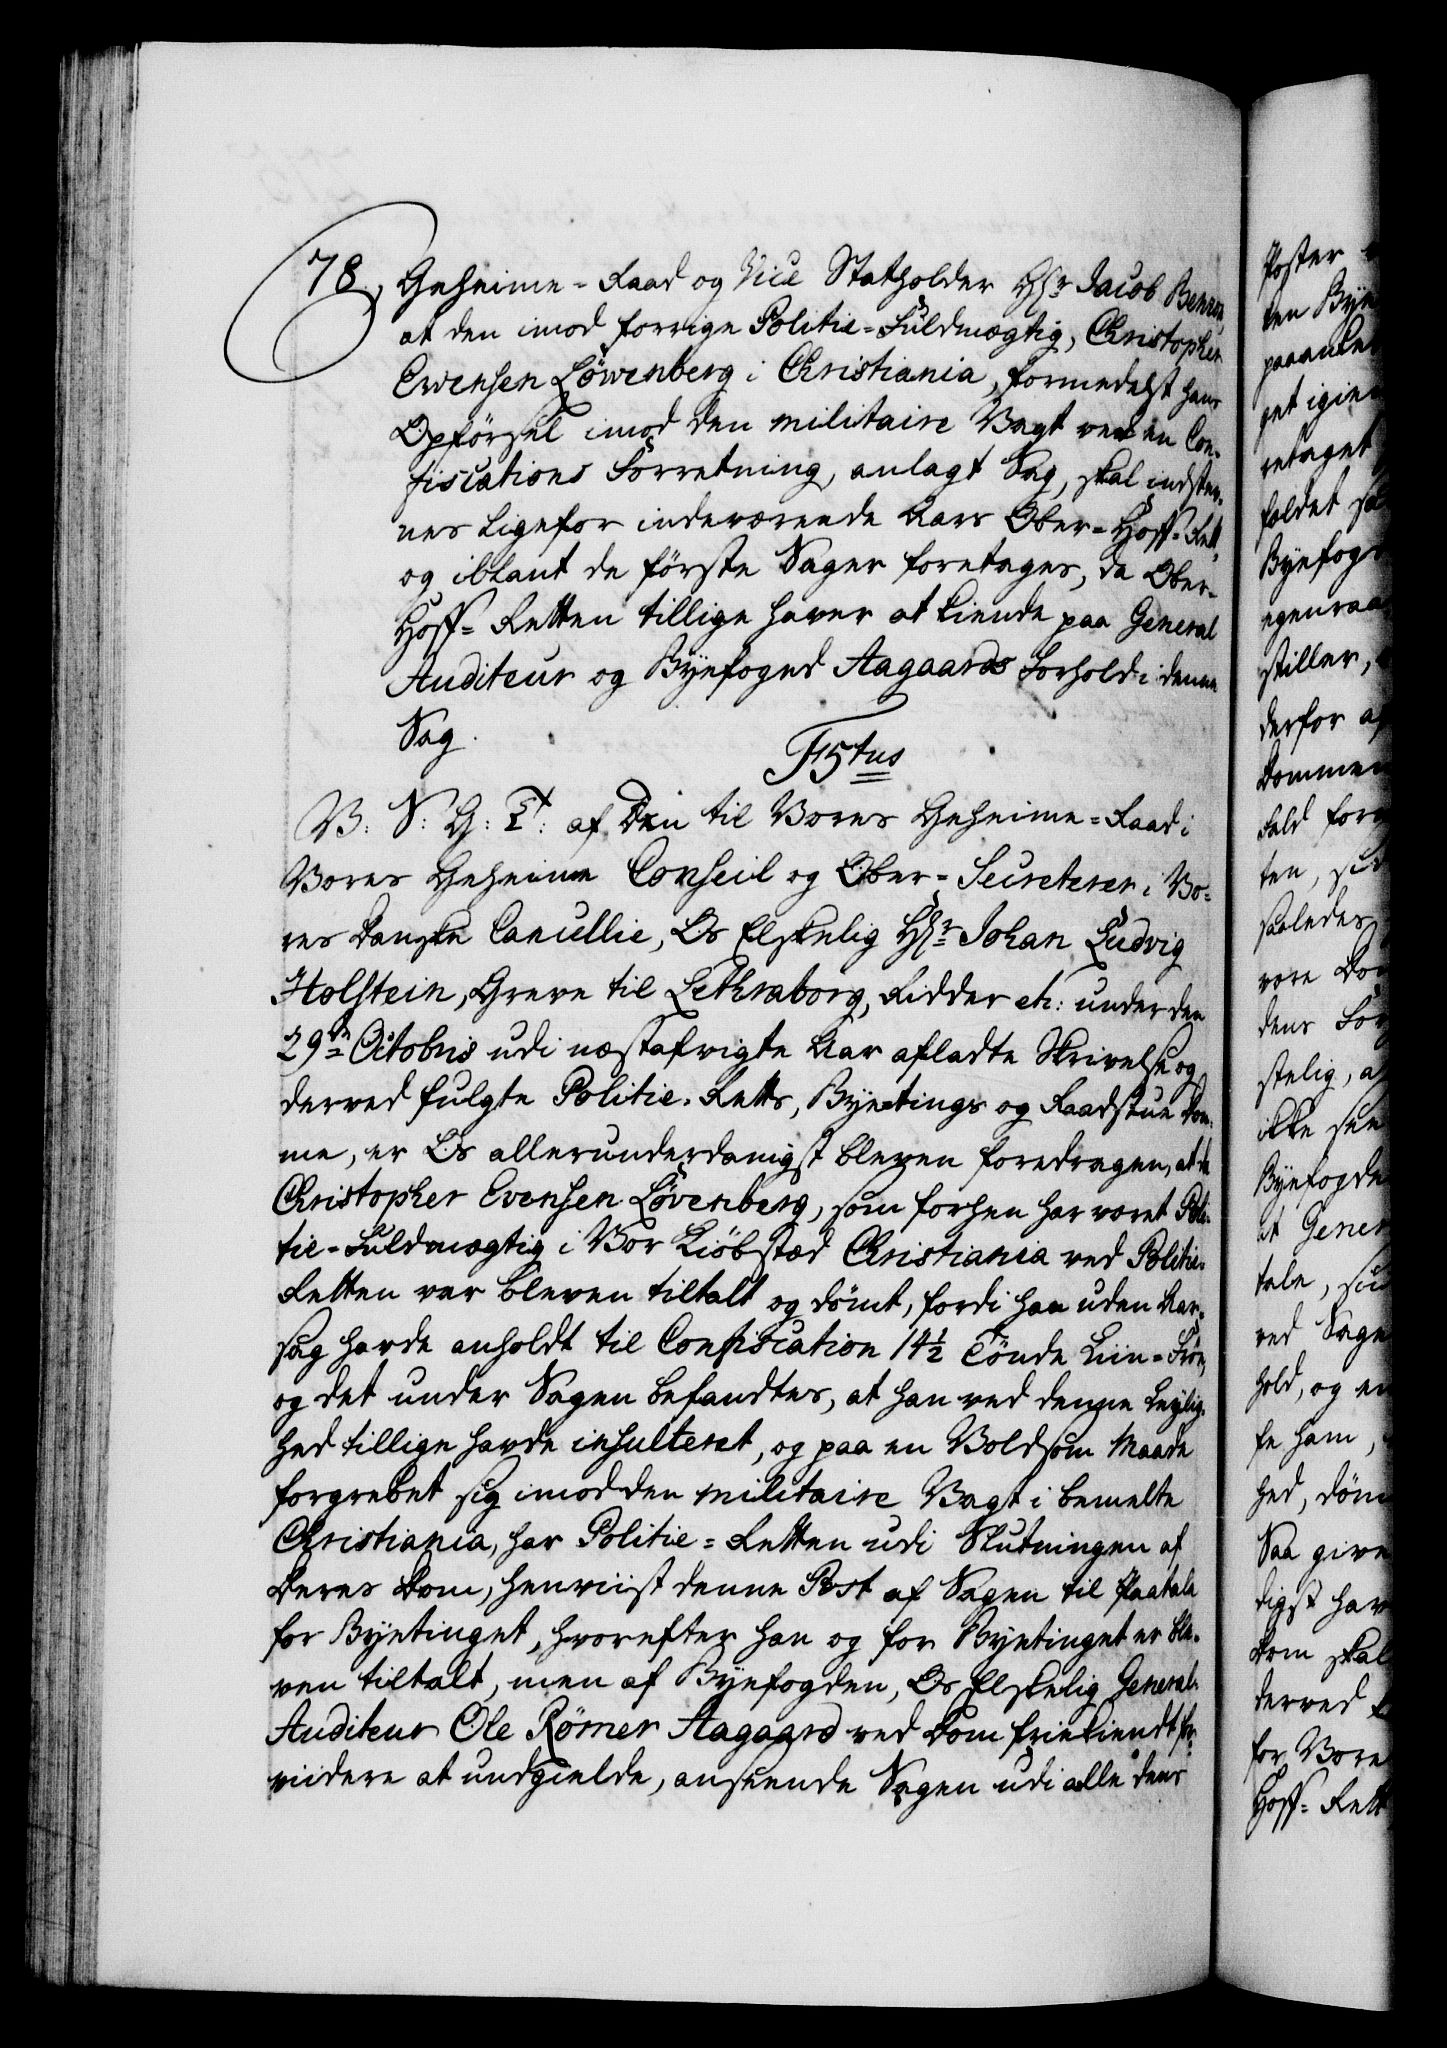 78., Geheime-Raad og Vice Statholder Hr: Jacob Benzon,
at den imod forrige Politie-Fuldmægtig, Christopher
Evensen Löwenberg i Christiania, formedelst hans
Opförsel imod den militaire Vagt ved en Con-
fiscations Forretning, anlagt Sag, skal indstev-
nes ligefor indeværende Aars Ober-Hoff-Rett,
og iblant de förste Sager foretages, da Ober-
Hoff-Retten tillige haver at kiende paa General
Auditeur og Byefoged Aagaards Forhold i denne
Sag.
F5tus
V: S: G: T: af Den til Vores Geheime-Raad i
Vores Geheime Conseil og Ober-Secreterer i Vo-
res Danske Cancellie, Os Elskelig Hr: Johan Ludvig
Holstein, Greve til Lethraborg, Ridder etc: under den
29de Octobris udi næstafvigte Aar afladte Skrivelse og
derved fulgte Politie-Retts, Byetings og Raadstue Dom-
me, er Os allerunderdanigst bleven foredragen, at da
Christopher Evensen Lövenberg, som forhen har været Poli-
tie-Fuldmægtig i Vor Kiöbstæd Christiania ved Politie-
Retten var bleven tiltalt og dömt, fordi han uden Aar-
sag havde anholdt til Confiscation 14½ Tönde Liin-Fröe,
og det under Sagen befandtes, at han ved denne Leylig-
hed tillige havde insulteret, og paa en Voldsom Maade
forgrebet sig imod den militaire Vagt i bemelte
Christiania, har Politie-Retten udi Slutningen af
Deres Dom, henviist denne Post af Sagen til Paatale
for Byetinget, hvorefter han og for Byetinget er ble-
ven tiltalt, men af Byefogden, Os Elskelig General-
Auditeur Ole Römer Aagaard ved Dom friekiendt fr
viidere at undgielde, anseende Sagen udi alle dens
Poster
ten Bye
paaanke
get igien
retaget
foldet
Byefog
egenraa
stiller,
derfor
Dommen
Fald for
ten,
saaledes
vore Do
dens For
stelig, a
ikke
Byefogde
at Gener
tale,
ved Sage
hold, og en
fe ham,
hed, döm
Saa give
digst hav
Dom skal
derved
for Vore
Hoff-Rett